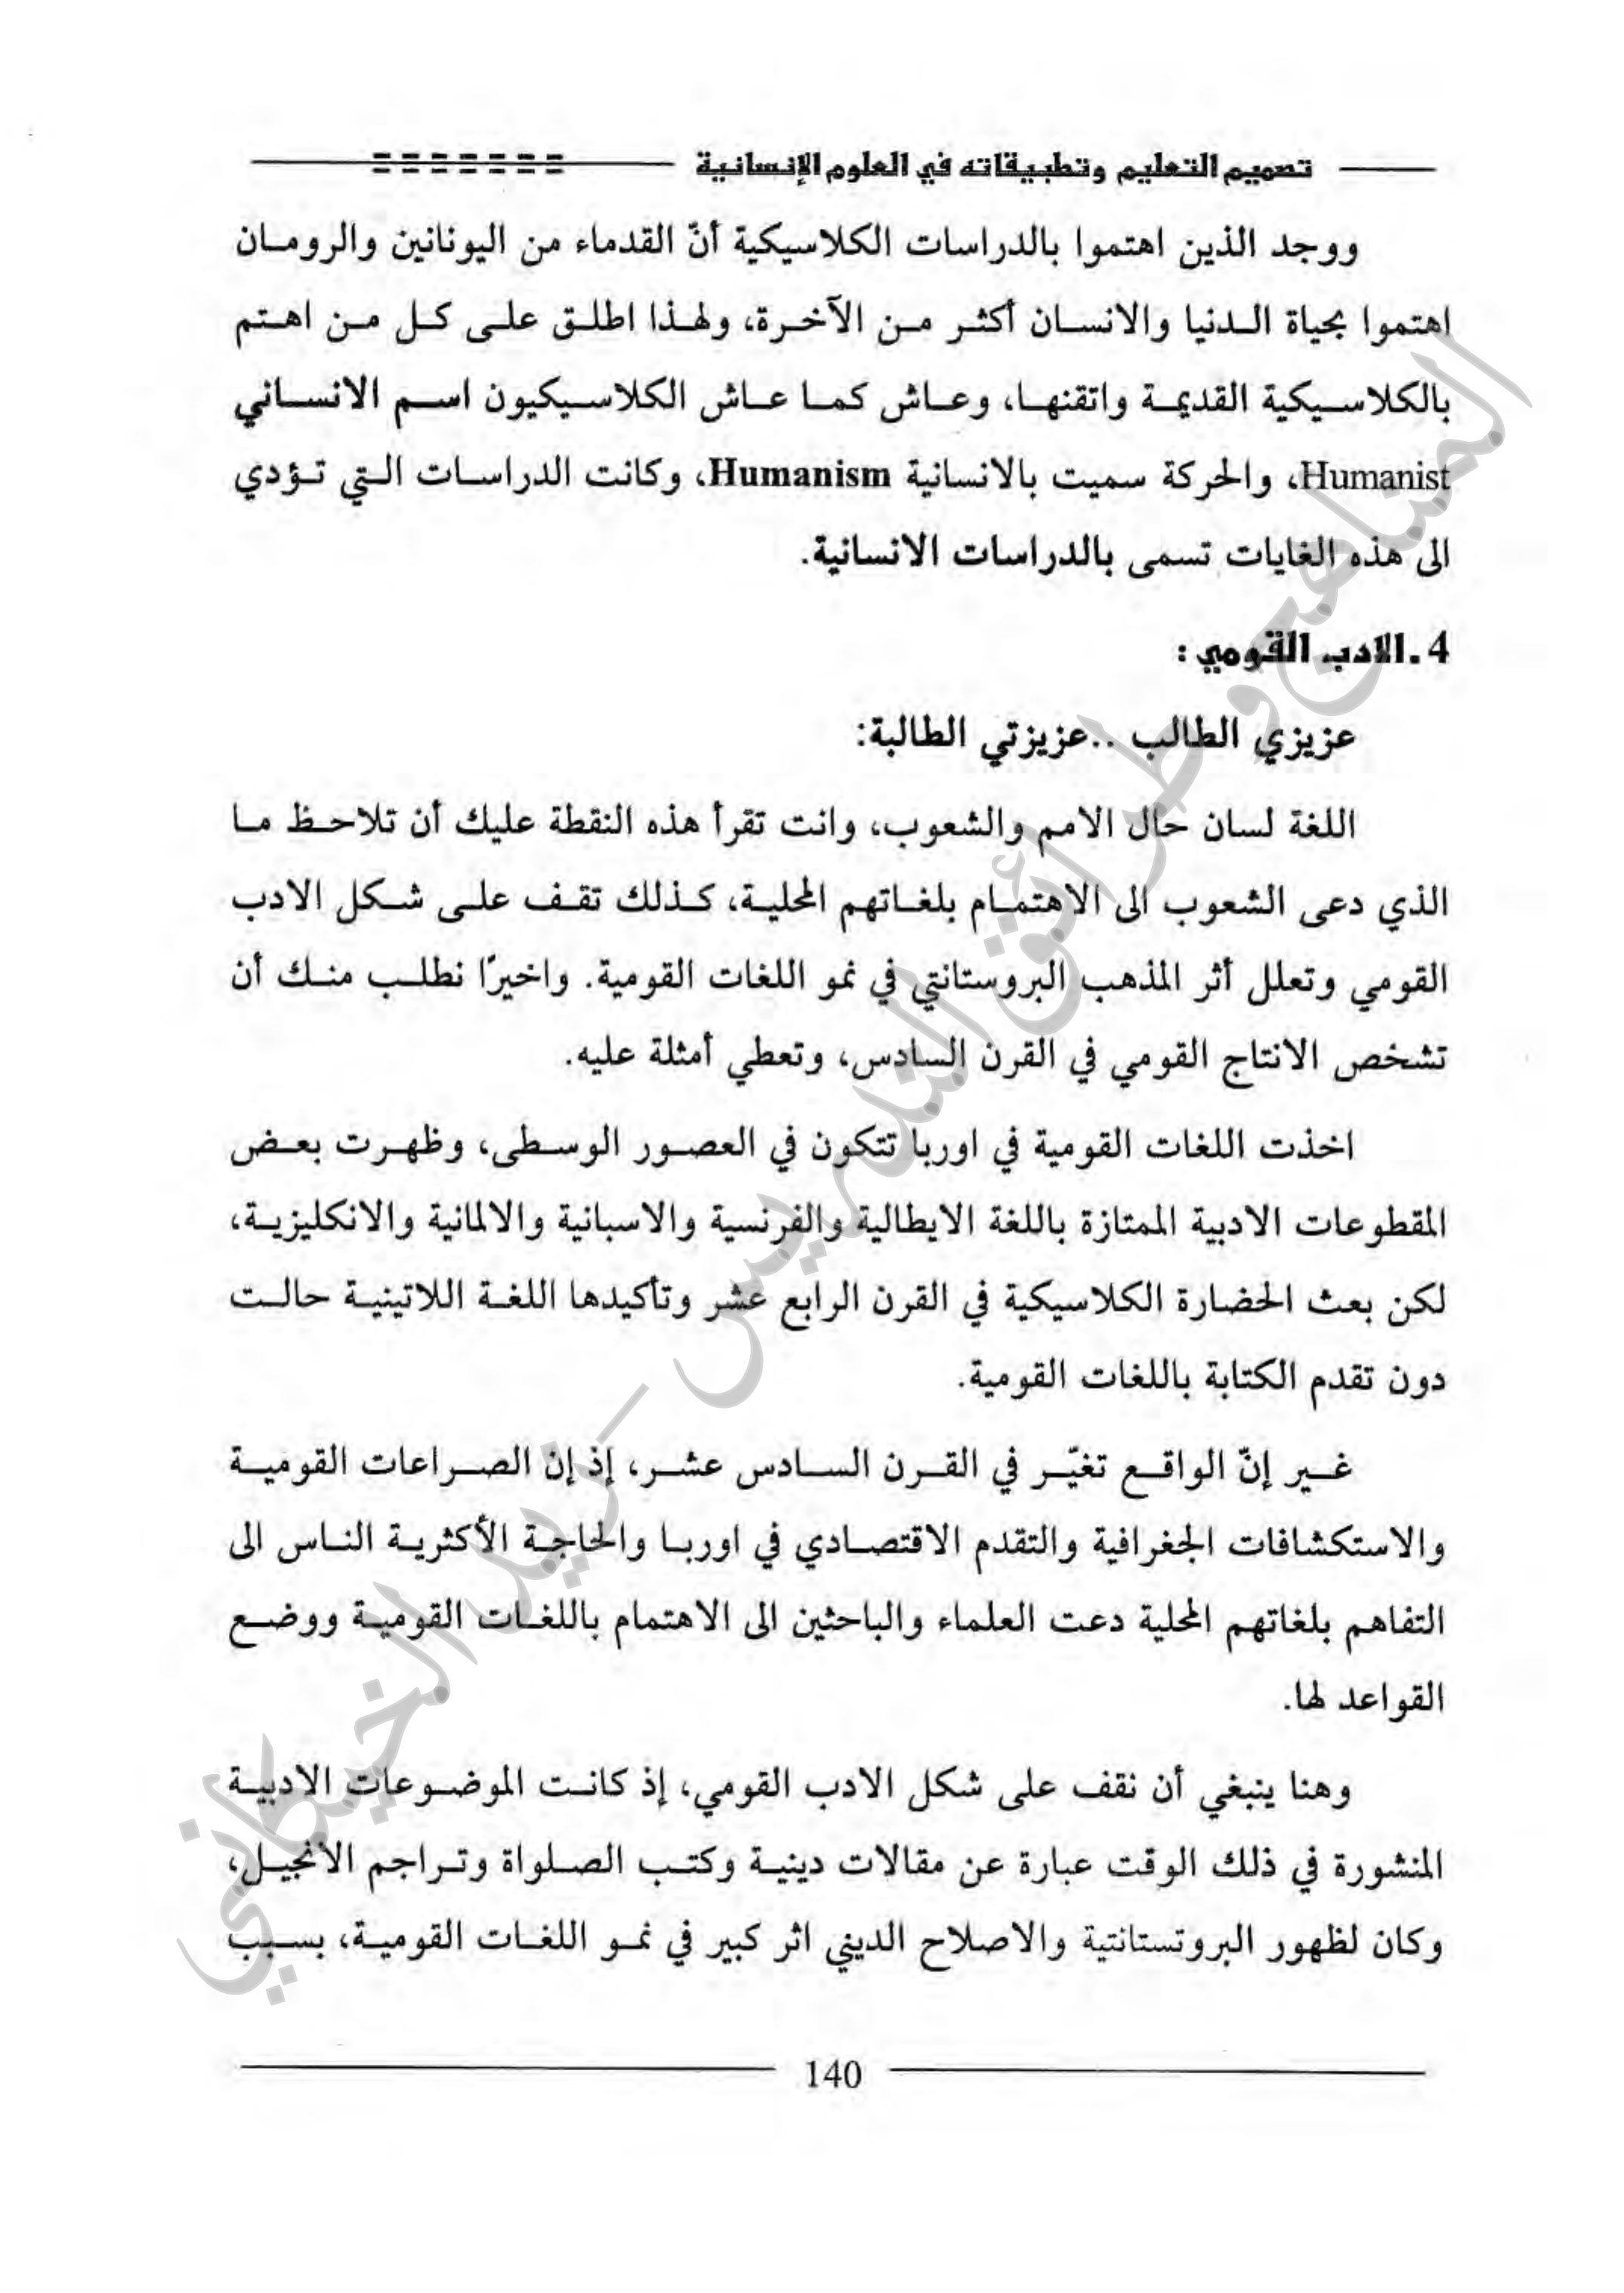 تصميم التعليم وتطبيقاته في العلوم الإنسانية
ووجد الذين اهتموا بالدراسات الكلاسيكية أنّ القدماء من اليونانين والرومان
اهتموا بحياة الدنيا والانسان أكثر من الآخرة، ولهذا اطلق على كل من اهتم
بالكلاسيكية القديمة واتقنها، وعاش كما عاش الكلاسيكيون اسم الانساني
Humanist، والحركة سميت بالانسانية Humanism، وكانت الدراسات التي تؤدي
الى هذه الغايات تسمى بالدراسات الانسانية.
4. الادب القومي :
عزيزي الطالب ..عزيزتي الطالبة:
اللغة لسان حال الامم والشعوب، وانت تقرأ هذه النقطة عليك أن تلاحظ ما
الذي دعى الشعوب الى الاهتمام بلغاتهم المحلية، كذلك تقف على شكل الادب
القومي وتعلل أثر المذهب البروستانتي في نمو اللغات القومية. واخيرًا نطلب منك أن
تشخص الانتاج القومي في القرن السادس، وتعطي أمثلة عليه.
اخذت اللغات القومية في اوربا تتكون في العصور الوسطى، وظهرت بعض
المقطوعات الادبية الممتازة باللغة الايطالية والفرنسية والاسبانية والالمانية والانكليزية،
لكن بعث الحضارة الكلاسيكية في القرن الرابع عشر وتأكيدها اللغة اللاتينية حالت
دون تقدم الكتابة باللغات القومية.
غير إنّ الواقع تغيّر في القرن السادس عشر، إذ إن الصراعات القومية
والاستكشافات الجغرافية والتقدم الاقتصادي في اوربا والحاجة الأكثرية الناس الى
التفاهم بلغاتهم المحلية دعت العلماء والباحثين الى الاهتمام باللغات القومية ووضع
القواعد لها.
وهنا ينبغي أن نقف على شكل الادب القومي، إذ كانت الموضوعات الادبية
المنشورة في ذلك الوقت عبارة عن مقالات دينية وكتب الصلواة وتراجم الانجيل،
وكان لظهور البروتستانتية والاصلاح الديني اثر كبير في نمو اللغات القومية، بسبب
140
المناهج وطرائق التدريس - ريد الخيكاني